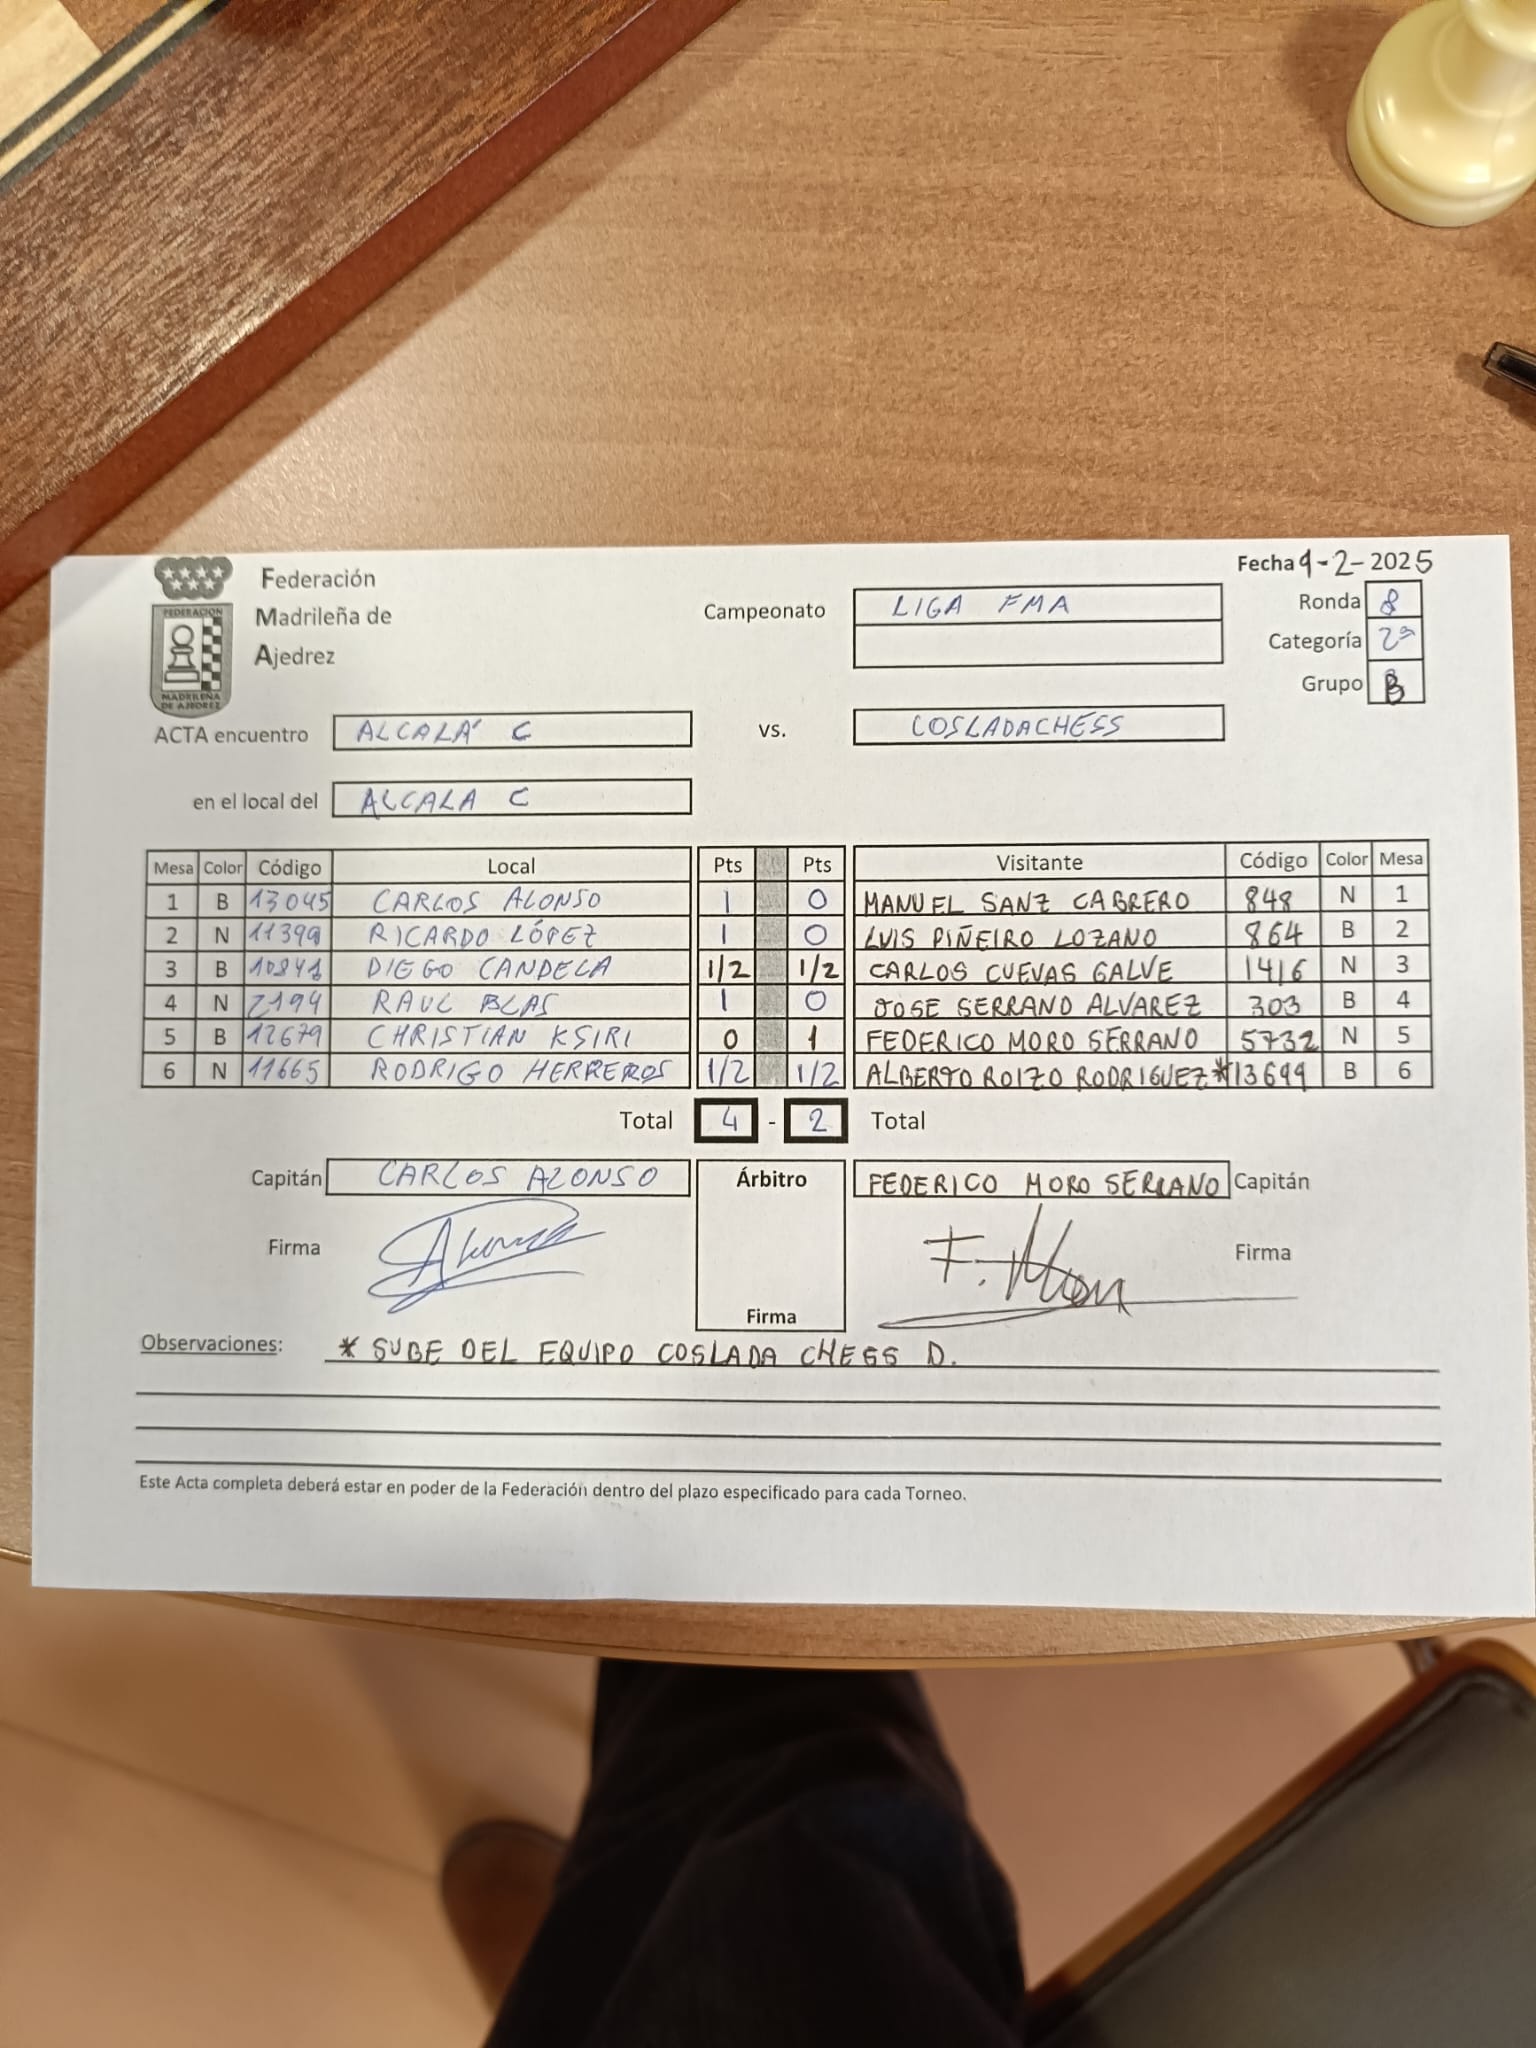 Fecha 9-2-2025
Federación
Madrileña de
Ajedrez
FEDERACION
MADRILEÑA
DE AJEDREZ
Campeonato LIGA FMA
Ronda 8
Categoría 2ª
Grupo B
ACTA encuentro ALCALÁ C vs. COSLADACHESS
en el local del ALCALA C
Mesa Color Código Local Pts Pts Visitante Código Color Mesa
1 B 13045 CARLOS ALONSO 1 0 MANUEL SANZ CABRERO 848 N 1
2 N 11399 RICARDO LÓPEZ 1 0 LUIS PIÑEIRO LOZANO 864 B 2
3 B 10841 DIEGO CANDELA 1/2 1/2 CARLOS CUEVAS GALVE 1416 N 3
4 N 2194 RAUL BLAS 1 0 JOSE SERRANO ALVAREZ 303 B 4
5 B 12679 CHRISTIAN KSIRI 0 1 FEDERICO MORO SERRANO 5732 N 5
6 N 11665 RODRIGO HERREROS 1/2 1/2 ALBERTO ROIZO RODRIGUEZ * 13699 B 6
Total 4 - 2 Total
Capitán CARLOS ALONSO Árbitro FEDERICO MORO SERRANO Capitán
Firma Alonso F. Moro Firma
Firma
Observaciones: * SUBE DEL EQUIPO COSLADA CHESS D.
Este Acta completa deberá estar en poder de la Federación dentro del plazo especificado para cada Torneo.